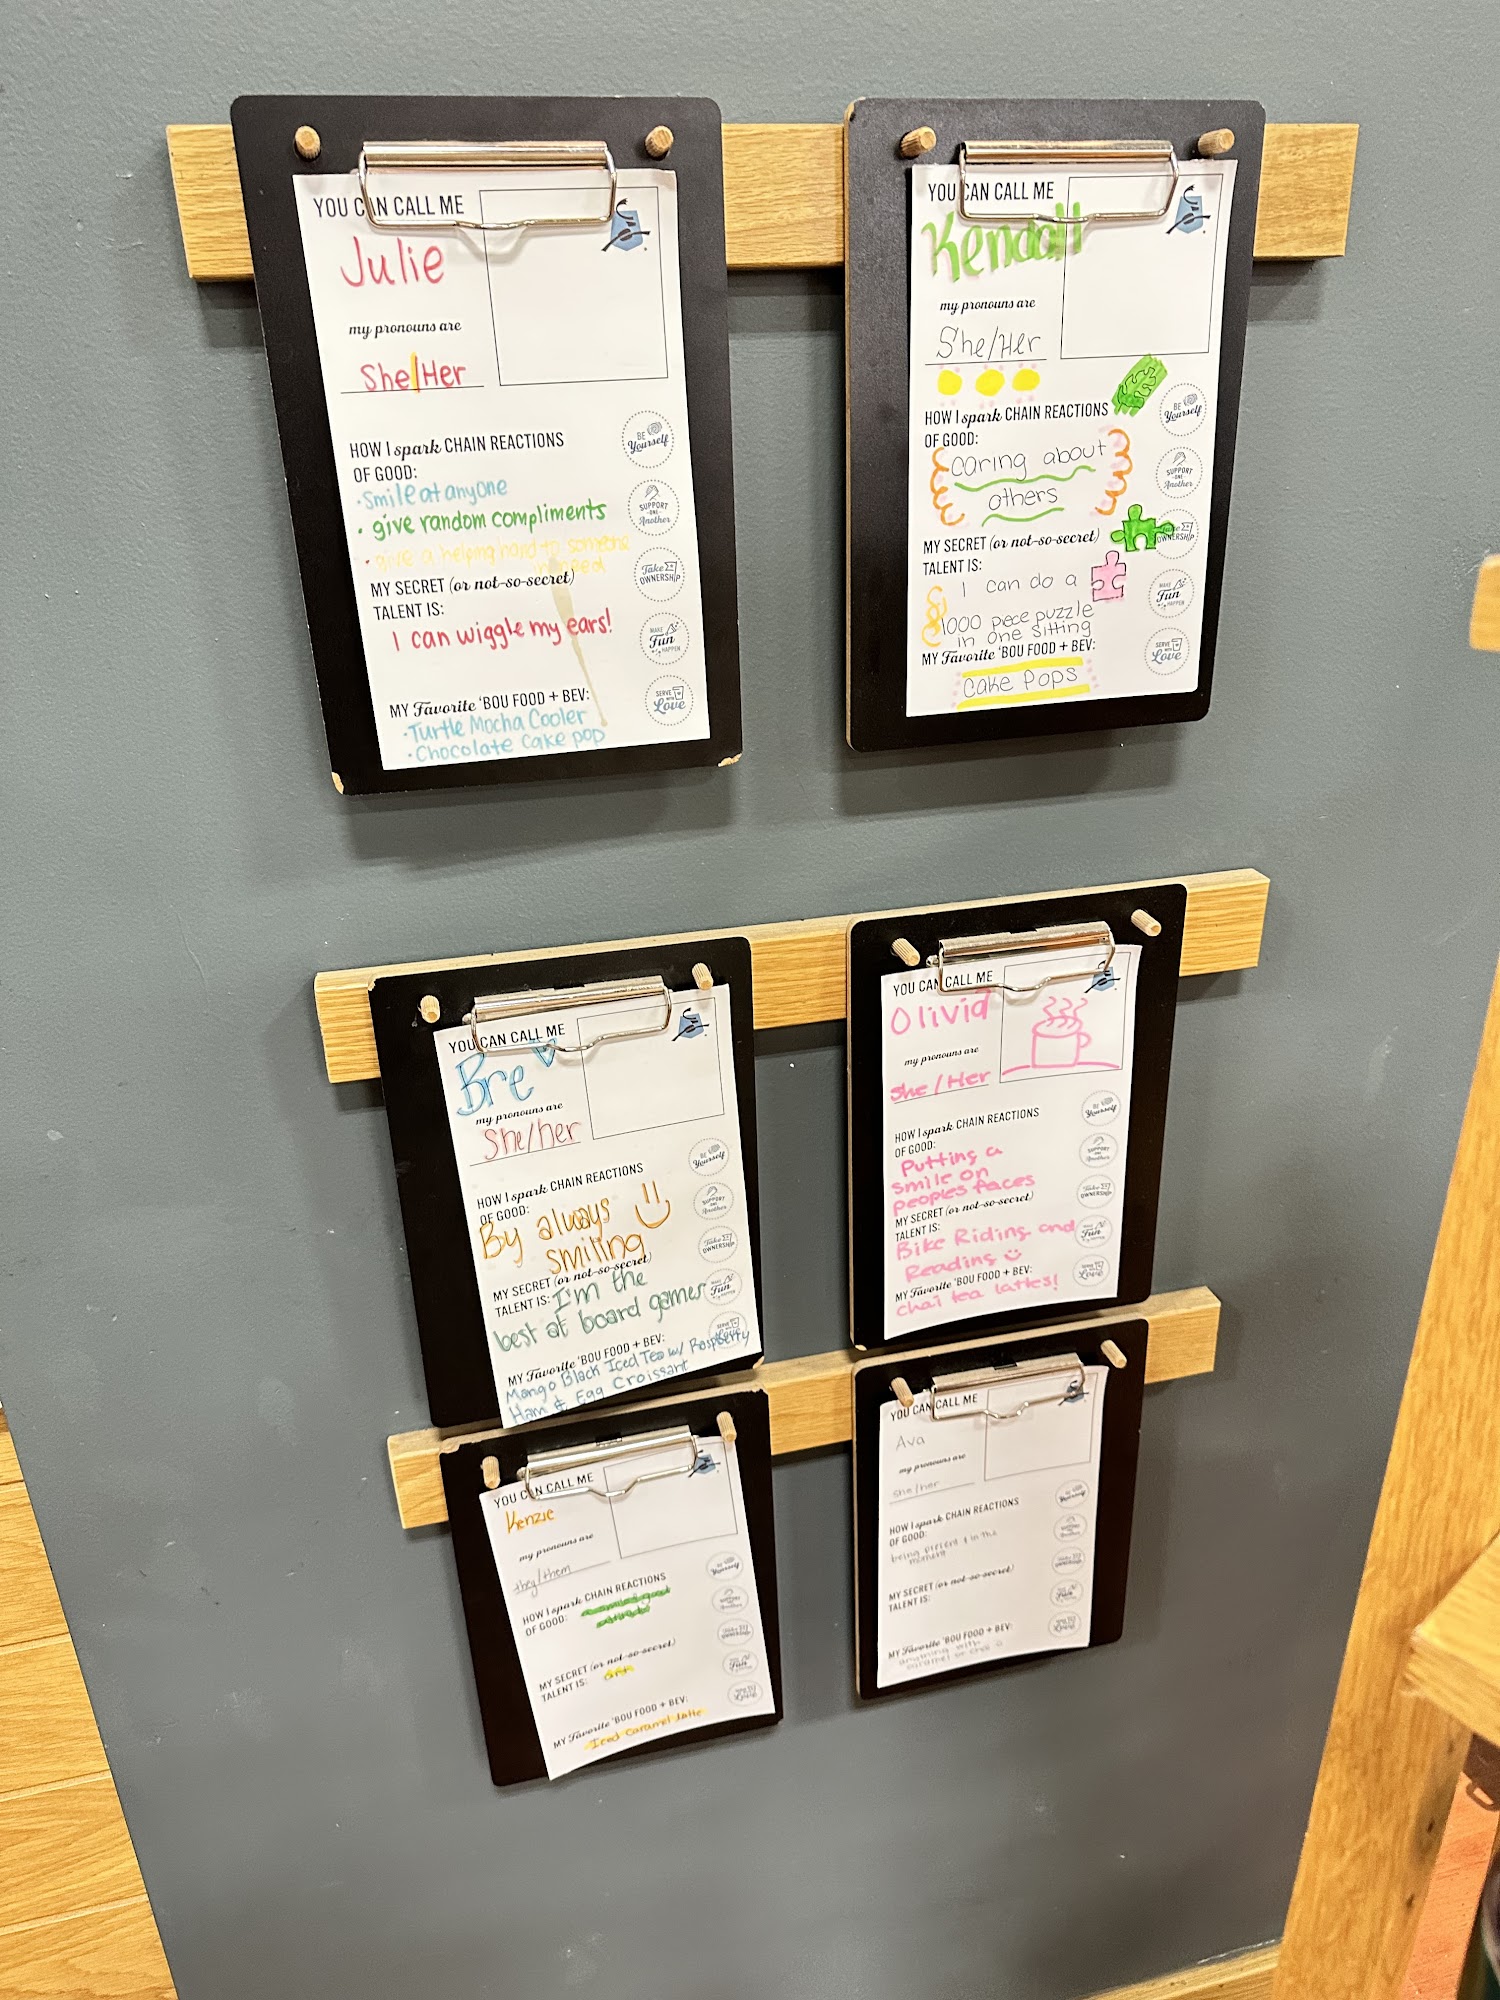 YOU CAN CALL ME
Julie
my pronouns are
She/Her
HOW I spark CHAIN REACTIONS
OF GOOD:
• Smile at anyone
• give random compliments
• give a helping hand to someone
in need
MY SECRET (or not-so-secret)
TALENT IS:
I can wiggle my ears!
MY Favorite 'BOU FOOD + BEV:
• Turtle Mocha Cooler
• Chocolate Cake pop
BE
Yourself
SUPPORT
ONE
Another
Take
OWNERSHIP
MAKE
Fun
HAPPEN
SERVE
WITH
Love
YOU CAN CALL ME
Kendall
my pronouns are
She/Her
HOW I spark CHAIN REACTIONS
OF GOOD:
caring about
others
MY SECRET (or not-so-secret)
TALENT IS:
I can do a
1000 piece puzzle
in one sitting
MY Favorite 'BOU FOOD + BEV:
Cake Pops
BE
Yourself
SUPPORT
ONE
Another
Take
OWNERSHIP
MAKE
Fun
HAPPEN
SERVE
WITH
Love
YOU CAN CALL ME
Bre
my pronouns are
She/her
HOW I spark CHAIN REACTIONS
OF GOOD:
By always
smiling
MY SECRET (or not-so-secret)
TALENT IS: I'm the
best at board games
MY Favorite 'BOU FOOD + BEV:
Mango Black Iced Tea w/ Raspberry
Ham & Egg Croissant
BE
Yourself
SUPPORT
ONE
Another
Take
OWNERSHIP
MAKE
Fun
HAPPEN
SERVE
YOU CAN CALL ME
Olivia
my pronouns are
She/Her
HOW I spark CHAIN REACTIONS
OF GOOD:
Putting a
smile on
peoples faces
MY SECRET (or not-so-secret)
TALENT IS:
Bike Riding and
Reading
MY Favorite 'BOU FOOD + BEV:
chai tea lattes!
BE
Yourself
SUPPORT
ONE
Another
Take
OWNERSHIP
Fun
Love
YOU CAN CALL ME
Kenzie
my pronouns are
they/them
HOW I spark CHAIN REACTIONS
OF GOOD:
MY SECRET (or not-so-secret)
TALENT IS:
art
MY Favorite 'BOU FOOD + BEV:
Iced Caramel latte
Yourself
Another
OWNERSHIP
Fun
Love
YOU CAN CALL ME
Ava
my pronouns are
she/her
HOW I spark CHAIN REACTIONS
OF GOOD:
being present & in the
moment
MY SECRET (or not-so-secret)
TALENT IS:
MY Favorite 'BOU FOOD + BEV:
anything with
caramel or
Yourself
Another
OWNERSHIP
Fun
Love